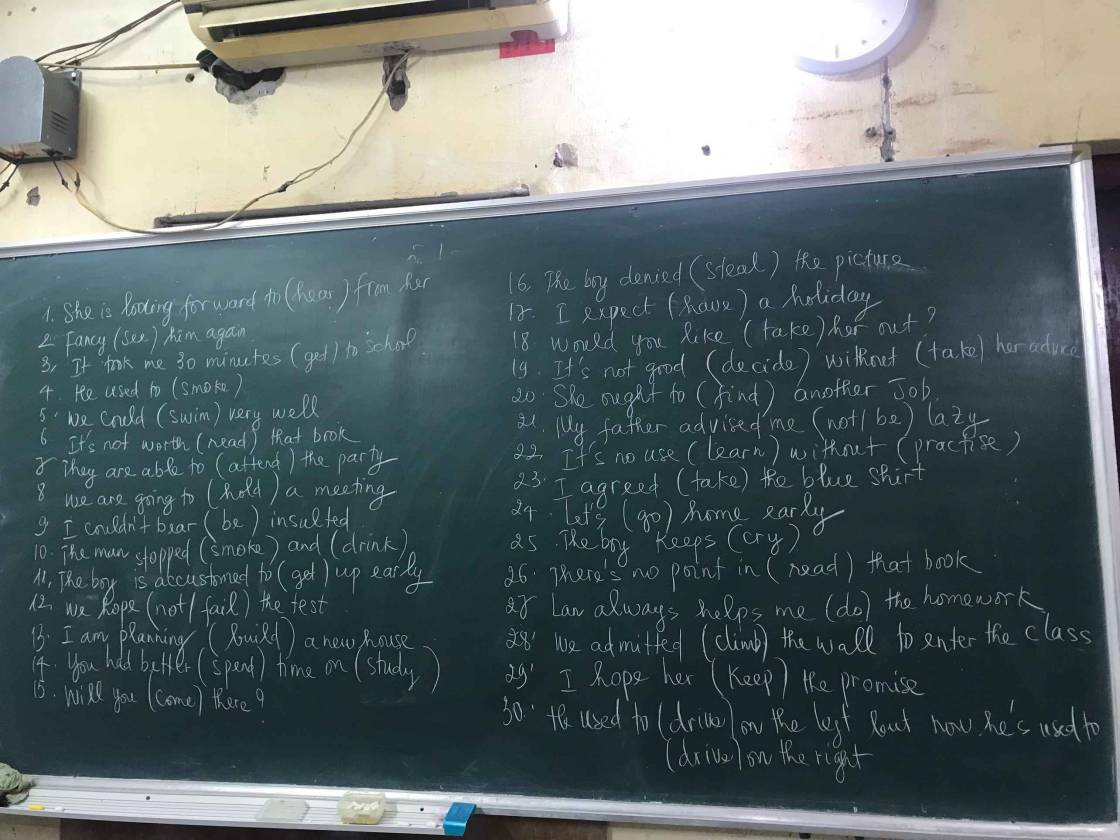 1. She is looking forward to (hear) from her
2. Fancy (see) him again
3, It took me 30 minutes (get) to school
4. He used to (smoke)
5. We could (swim) very well
6 It's not worth (read) that book
7 They are able to (attend) the party
8 We are going to (hold) a meeting
9. I couldn't bear (be) insulted
10. The man stopped (smoke) and (drink)
11, The boy is accustomed to (get) up early
12, We hope (not/fail) the test
13. I am planning (build) a new house
14. You had better (spend) time on (study)
15. Will you (come) there?
16. The boy denied (steal) the picture
17. I expect (have) a holiday
18. Would you like (take) her out?
19. It's not good (decide) without (take) her advice
20. She ought to (find) another Job.
21. My father advised me (not/be) lazy
22. It's no use (learn) without (practise)
23. I agreed (take) the blue shirt
24. Let's (go) home early
25 .The boy keeps (cry)
26. There's no point in (read) that book
27 Lan always helps me (do) the homework
28. We admitted (climb) the wall to enter the class
29. I hope her (keep) the promise
30. He used to (drive) on the left but now he's used to
(drive) on the right